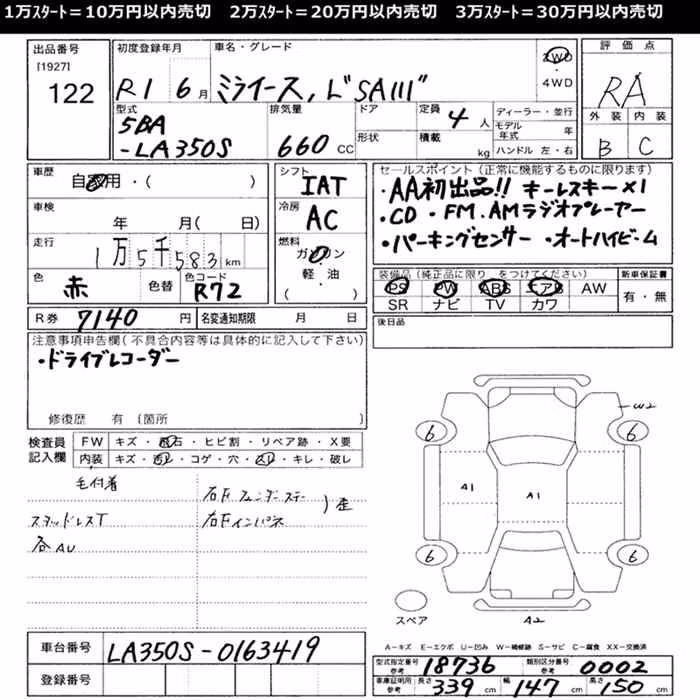 1万ｽﾀｰﾄ＝10万円以内売切　2万ｽﾀｰﾄ＝20万円以内売切　3万ｽﾀｰﾄ＝30万円以内売切
出品番号
[1927]
122
初度登録年月
R1 6月
車名・グレード
ミライース, L"SAIII"
2WD
・
4WD
評価点
RA
外装 内装
B C
型式
5BA
-LA350S
排気量
660 CC
ドア
形状
定員
4人
積載
kg
ディーラー・並行
モデル年式 年
ハンドル 左・右
車歴
自家用・( )
車検
年 月( 日)
走行
1万5千583km
色
赤
色替
色コード
R72
シフト
IAT
冷房
AC
燃料
ガソリン
・
軽・油
( )
セールスポイント (正常に機能するものに限ります)
・AA初出品!! キーレスキー×1
・CD ・FM.AMラジオプレーヤー
・パーキングセンサー ・オートハイビーム
装備品 (純正品に限り をつけてください)
PS PW ABS エアB AW
SR ナビ TV カワ
新車保証書
有・無
後日品
R券 7140円
名変通知期限 月 日
注意事項申告欄(不具合内容等は具体的に記入して下さい)
・ドライブレコーダー
修復歴 有 (箇所
検査員
記入欄
FW キズ・飛石・ヒビ割・リペア跡・X要
内装 キズ・汚レ・コゲ・穴・スレ・キレ・破レ
毛付着
スタッドレスT
各AU
右Fフェンダーステー
右Fインパネ
) 歪
W2
6
6
A1
A1
6
6
スペア
A2
車台番号 LA350S-0163419
登録番号
A－キズ E－エクボ U－凹み W－補修跡 S－サビ C－腐食 XX－交換済
型式指定番号
参考
18736
類別区分番号
参考
0002
車庫証明用
参考
長さ 339 cm 幅 147 cm 高さ 150 cm